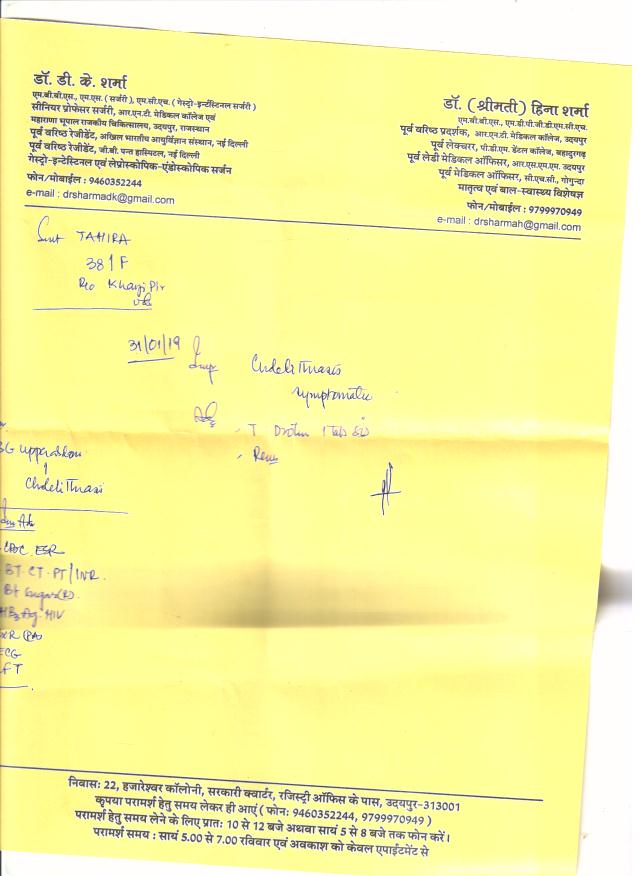 डॉ. डी. के. शर्मा
एम.बी.बी.एस., एम.एस. ( सर्जरी ), एम.सी.एच. ( गेस्ट्रो-इन्टेंस्टिनल सर्जरी )
सीनियर प्रोफेसर सर्जरी, आर.एन.टी. मेडिकल कॉलेज एवं
महाराणा भूपाल राजकीय चिकित्सालय, उदयपुर, राजस्थान
पूर्व वरिष्ठ रेजीडेंट, अखिल भारतीय आयुर्विज्ञान संस्थान, नई दिल्ली
पूर्व वरिष्ठ रेजीडेंट, जी.बी. पन्त हास्पिटल, नई दिल्ली
गेस्ट्रो-इन्टेस्टिनल एवं लेप्रोस्कोपिक-एंडोस्कोपिक सर्जन
फोन/मोबाईल : 9460352244
e-mail : drsharmadk@gmail.com
डॉ. (श्रीमती) हिना शर्मा
एम.बी.बी.एस., एम.डी.पी.जी.डी.एम.सी.एच.
पूर्व वरिष्ठ प्रदर्शक, आर.एन.टी. मेडिकल कॉलेज, उदयपुर
पूर्व लेक्चरर, पी.डी.एम. डेंटल कॉलेज, बहादुरगढ़
पूर्व लेडी मेडिकल ऑफिसर, आर.एस.एम.एम. उदयपुर
पूर्व मेडिकल ऑफिसर, सी.एच.सी., गोगुन्दा
मातृत्व एवं बाल-स्वास्थ्य विशेषज्ञ
फोन/मोबाईल : 9799970949
e-mail : drsharmah@gmail.com
Smt TAHIRA
38/F
R/o Khanji Pir
31/01/19
Cholelithiasis
symptomatic
Adv
T Drotin 1 Tab
USG upper abdomen
Cholelithiasis
CBC ESR
BT CT PT/INR
Bl Sugar (R)
HBsAg HIV
CXR (PA)
ECG
LFT
निवास: 22, हजारेश्वर कॉलोनी, सरकारी क्वार्टर, रजिस्ट्री ऑफिस के पास, उदयपुर-313001
कृपया परामर्श हेतु समय लेकर ही आएं ( फोन: 9460352244, 9799970949 )
परामर्श हेतु समय लेने के लिए प्रात: 10 से 12 बजे अथवा सायं 5 से 8 बजे तक फोन करें।
परामर्श समय : सायं 5.00 से 7.00 रविवार एवं अवकाश को केवल एपाईटमेंट से